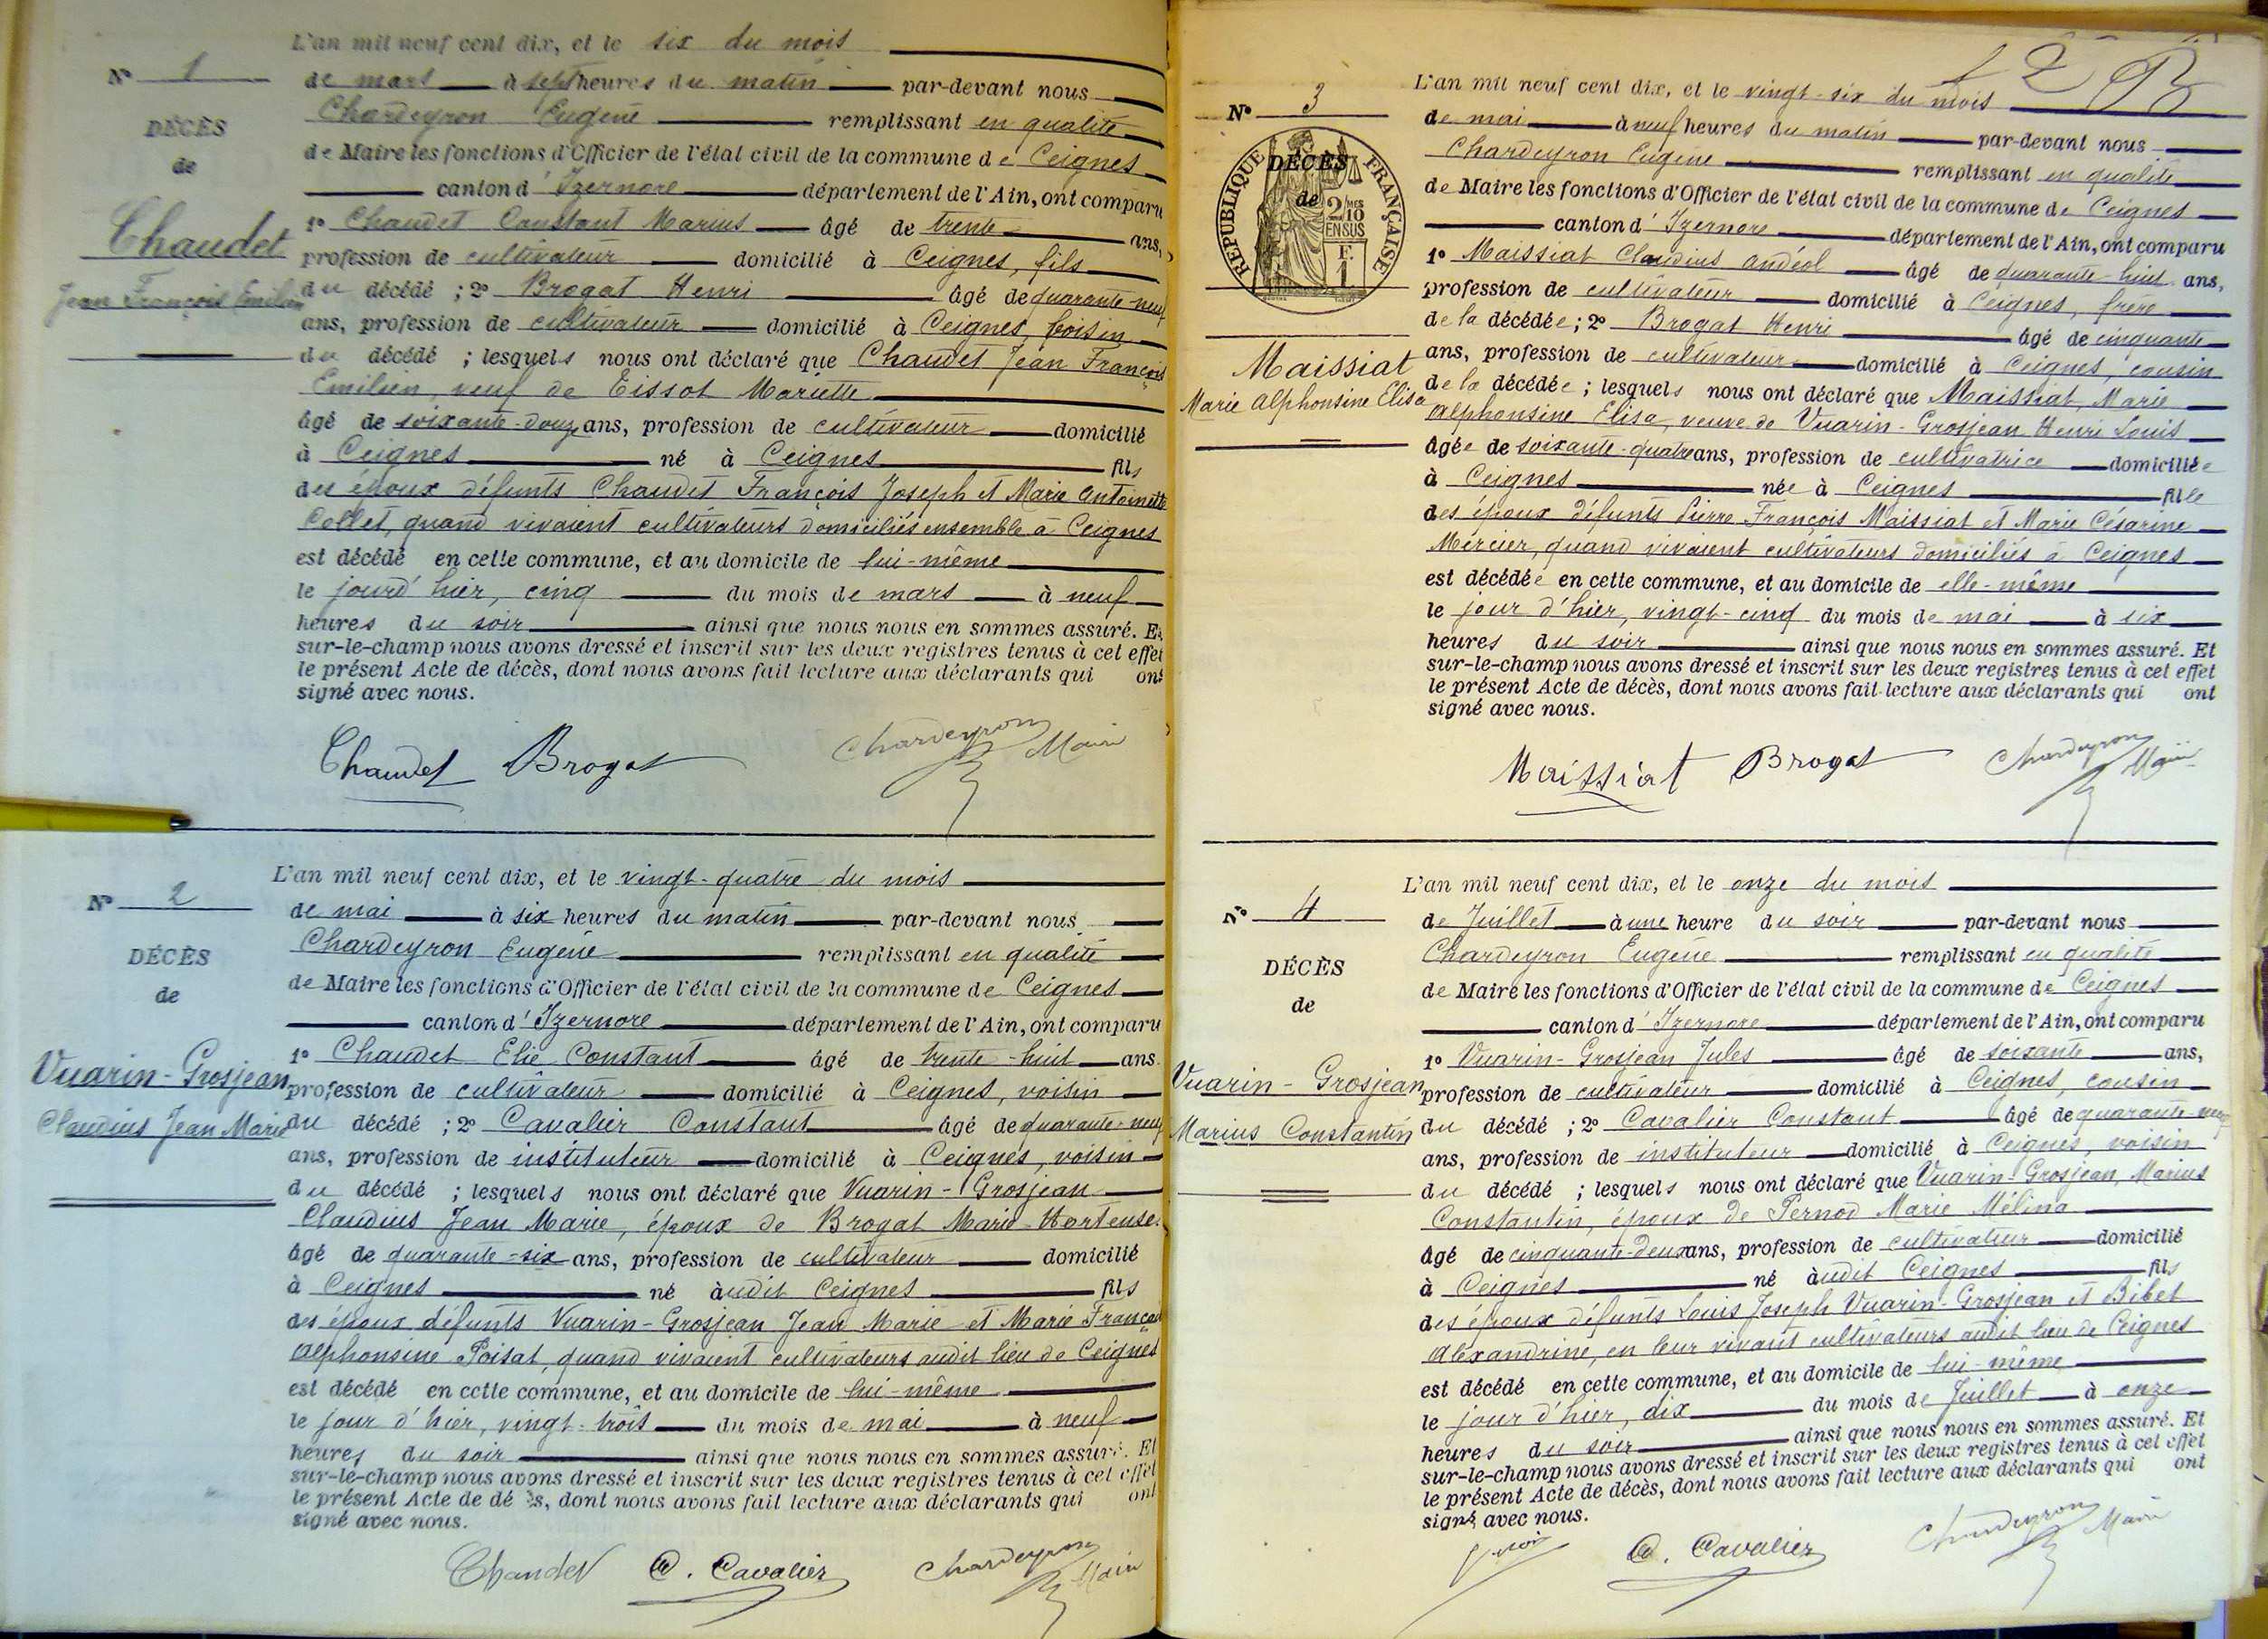 L'an mil neuf cent dix, et le six du mois
N° 1
de mars à sept heures du matin par-devant nous
Chardeyron Eugène remplissant en qualité
DÉCÈS
de Maire les fonctions d'Officier de l'état civil de la commune de Ceignes
de
canton d'Izernore département de l'Ain, ont comparu
Chaudet
1° Chaudet Constant Marius âgé de trente ans,
profession de cultivateur domicilié à Ceignes, fils
Jean François Emilien
du décédé ; 2° Brogat Henri âgé de quarante-neuf
ans, profession de cultivateur domicilié à Ceignes, voisin
du décédé ; lesquels nous ont déclaré que Chaudet Jean François
Emilien, veuf de Tissot Mariette
âgé de soixante-douze ans, profession de cultivateur domicilié
à Ceignes né à Ceignes fils
des époux défunts Chaudet François Joseph et Marie Antoinette
Collet, quand vivaient cultivateurs domiciliés ensemble à Ceignes
est décédé en cette commune, et au domicile de lui-même
le jourd'hier, cinq du mois de mars à neuf
heures du soir ainsi que nous nous en sommes assuré. Et
sur-le-champ nous avons dressé et inscrit sur les deux registres tenus à cet effet
le présent Acte de décès, dont nous avons fait lecture aux déclarants qui ont
signé avec nous.
Chaudet Brogat Chardeyron Maire
L'an mil neuf cent dix, et le vingt-quatre du mois
N° 2
de mai à six heures du matin par-devant nous
Chardeyron Eugène remplissant en qualité
DÉCÈS
de Maire les fonctions d'Officier de l'état civil de la commune de Ceignes
de
canton d'Izernore département de l'Ain, ont comparu
1° Chaudet Elie Constant âgé de trente-huit ans.
Vuarin-Grosjean
profession de cultivateur domicilié à Ceignes, voisin
Claudius Jean Marie
du décédé ; 2° Cavalier Constant âgé de quarante-neuf
ans, profession de instituteur domicilié à Ceignes, voisin
du décédé ; lesquels nous ont déclaré que Vuarin-Grosjean
Claudius Jean Marie, époux de Brogat Marie-Hortense.
âgé de quarante-six ans, profession de cultivateur domicilié
à Ceignes né audit Ceignes fils
des époux défunts Vuarin-Grosjean Jean Marie et Marie Françoise
Alphonsine Poisat, quand vivaient cultivateurs audit lieu de Ceignes
est décédé en cette commune, et au domicile de lui-même
le jour d'hier, vingt-trois du mois de mai à neuf
heures du soir ainsi que nous nous en sommes assuré. Et
sur-le-champ nous avons dressé et inscrit sur les deux registres tenus à cet effet
le présent Acte de décès, dont nous avons fait lecture aux déclarants qui ont
signé avec nous.
Chaudet C. Cavalier Chardeyron Maire
2
L'an mil neuf cent dix, et le vingt-six du mois
N° 3
de mai à neuf heures du matin par-devant nous
RÉPUBLIQUE FRANÇAISE
2/10 MES
EN SUS
F.
1
Chardeyron Eugène remplissant en qualité
DÉCÈS
de
de Maire les fonctions d'Officier de l'état civil de la commune de Ceignes
canton d'Izernore département de l'Ain, ont comparu
1° Maissiat Claudius Andéol âgé de quarante-huit ans,
profession de cultivateur domicilié à Ceignes, frère
de la décédée ; 2° Brogat Henri âgé de cinquante
Maissiat
ans, profession de cultivateur domicilié à Ceignes, cousin
Marie Alphonsine Elisa
de la décédée ; lesquels nous ont déclaré que Maissiat, Marie
Alphonsine Elisa, veuve de Vuarin-Grosjean Henri Louis
âgée de soixante-quatre ans, profession de cultivatrice domiciliée
à Ceignes née à Ceignes fille
des époux défunts Pierre François Maissiat et Marie Césarine
Mercier, quand vivaient cultivateurs domiciliés à Ceignes
est décédée en cette commune, et au domicile de elle-même
le jour d'hier, vingt-cinq du mois de mai à six
heures du soir ainsi que nous nous en sommes assuré. Et
sur-le-champ nous avons dressé et inscrit sur les deux registres tenus à cet effet
le présent Acte de décès, dont nous avons fait lecture aux déclarants qui ont
signé avec nous.
Maissiat Brogat Chardeyron Maire
L'an mil neuf cent dix, et le onze du mois
N° 4
de Juillet à une heure du soir par-devant nous
Chardeyron Eugène remplissant en qualité
DÉCÈS
de Maire les fonctions d'Officier de l'état civil de la commune de Ceignes
de
canton d'Izernore département de l'Ain, ont comparu
1° Vuarin-Grosjean Jules âgé de soixante ans,
Vuarin-Grosjean
profession de cultivateur domicilié à Ceignes, cousin
Marius Constantin
du décédé ; 2° Cavalier Constant âgé de quarante-neuf
ans, profession de instituteur domicilié à Ceignes, voisin
du décédé ; lesquels nous ont déclaré que Vuarin-Grosjean, Marius
Constantin, époux de Pernod Marie Mélina
âgé de cinquante-deux ans, profession de cultivateur domicilié
à Ceignes né audit Ceignes fils
des époux défunts Louis Joseph Vuarin-Grosjean et Bibet
Alexandrine, en leur vivant cultivateurs audit lieu de Ceignes
est décédé en cette commune, et au domicile de lui-même
le jour d'hier, dix du mois de Juillet à onze
heures du soir ainsi que nous nous en sommes assuré. Et
sur-le-champ nous avons dressé et inscrit sur les deux registres tenus à cet effet
le présent Acte de décès, dont nous avons fait lecture aux déclarants qui ont
signé avec nous.
C. Cavalier Chardeyron Maire